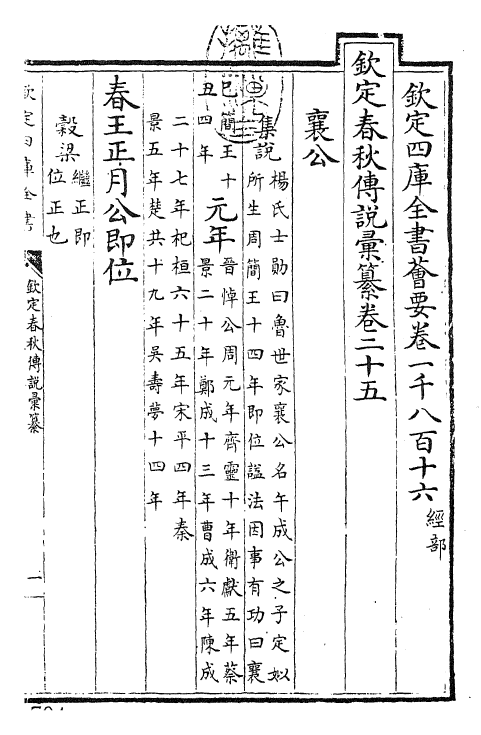 欽定四庫全書薈要卷一千八百十六 經部
欽定春秋傳說彙纂卷二十五
襄公
集說
楊氏士勛曰魯世家襄公名午成公之子定姒
所生周簡王十四年即位諡法因事有功曰襄
巳簡王十
丑四年
元年
晉悼公周元年齊靈十年衛獻五年蔡
景二十年鄭成十三年曹成六年陳成
二十七年杞桓六十五年宋平四年秦
景五年楚共十九年吳壽夢十四年
春王正月公即位
穀梁
繼正即
位正也
欽定四庫全書
欽定春秋傳說彙纂
一